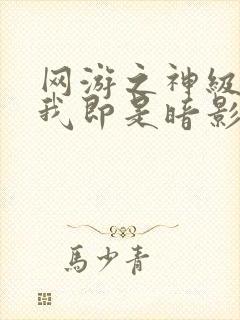 网游之神级
我即是暗影
馬少青